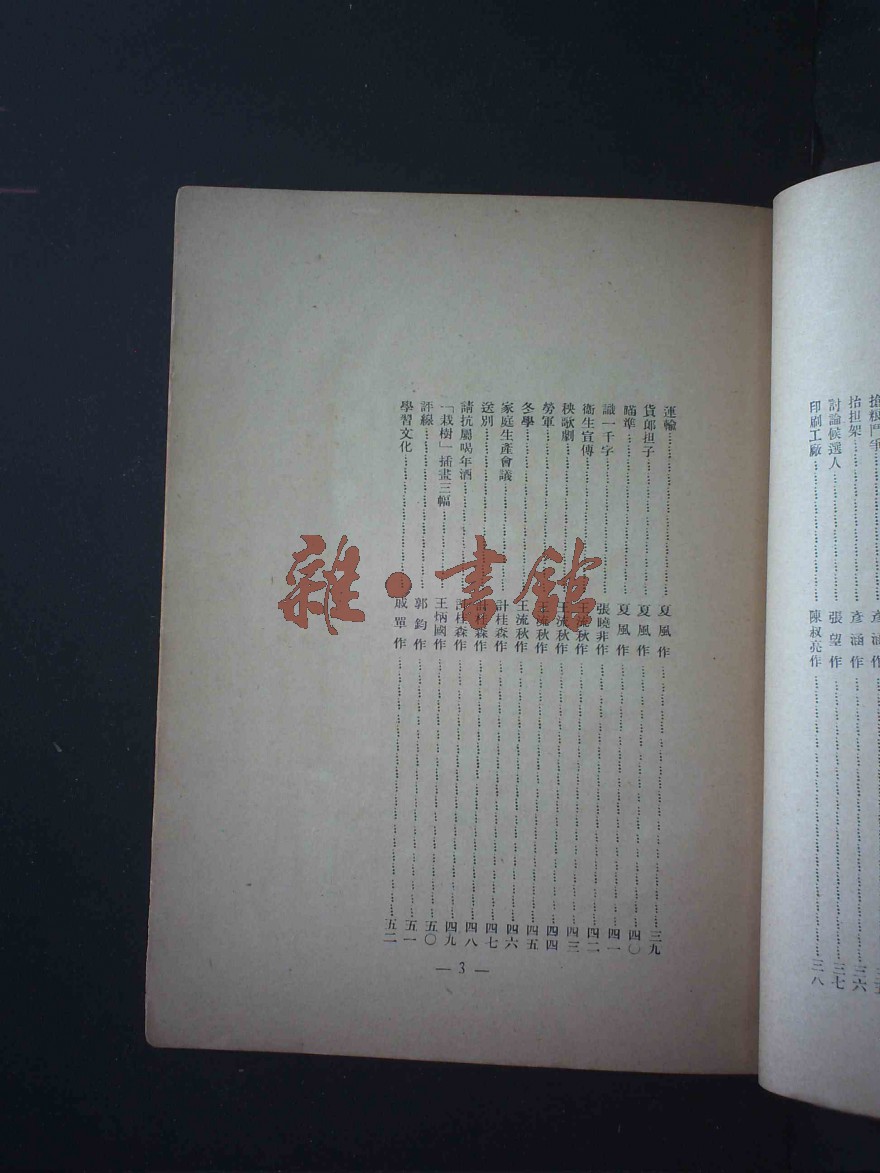 抬担架……彥涵作……三六
討論候選人……張望作……三七
印刷工廠……陳叔亮作……三八
運輸……夏風作……三九
貨郎担子……夏風作……四〇
瞄準……夏風作……四一
識一千字……張曉非作……四二
衛生宣傳……王流秋作……四三
秧歌劇……王流秋作……四四
勞軍……王流秋作……四五
冬學……王流秋作……四六
家庭生產會議……計桂森作……四七
送別……計桂森作……四八
請抗屬喝年酒……計桂森作……四九
「栽樹」插畫三幅……王炳國作……五〇
評線……郭鈞作……五一
學習文化……戚單作……五二
— 3 —
雜·書館